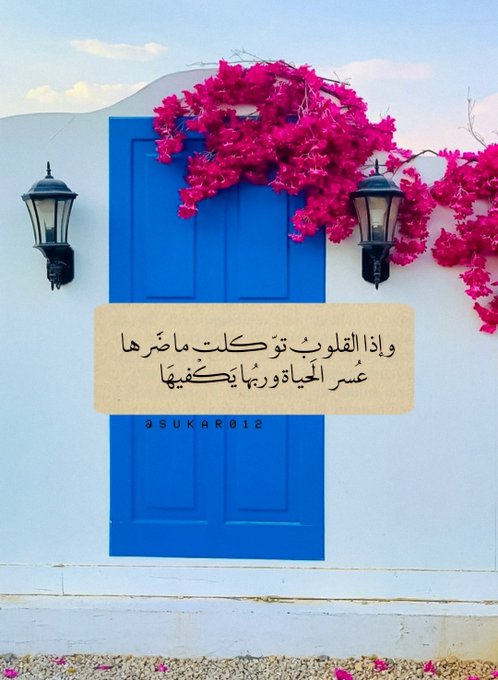 وإذا القلوبُ توّكلت ما ضَّرها
عُسر الَحياة وربُها يَكْفيهَا
@SUKAR012